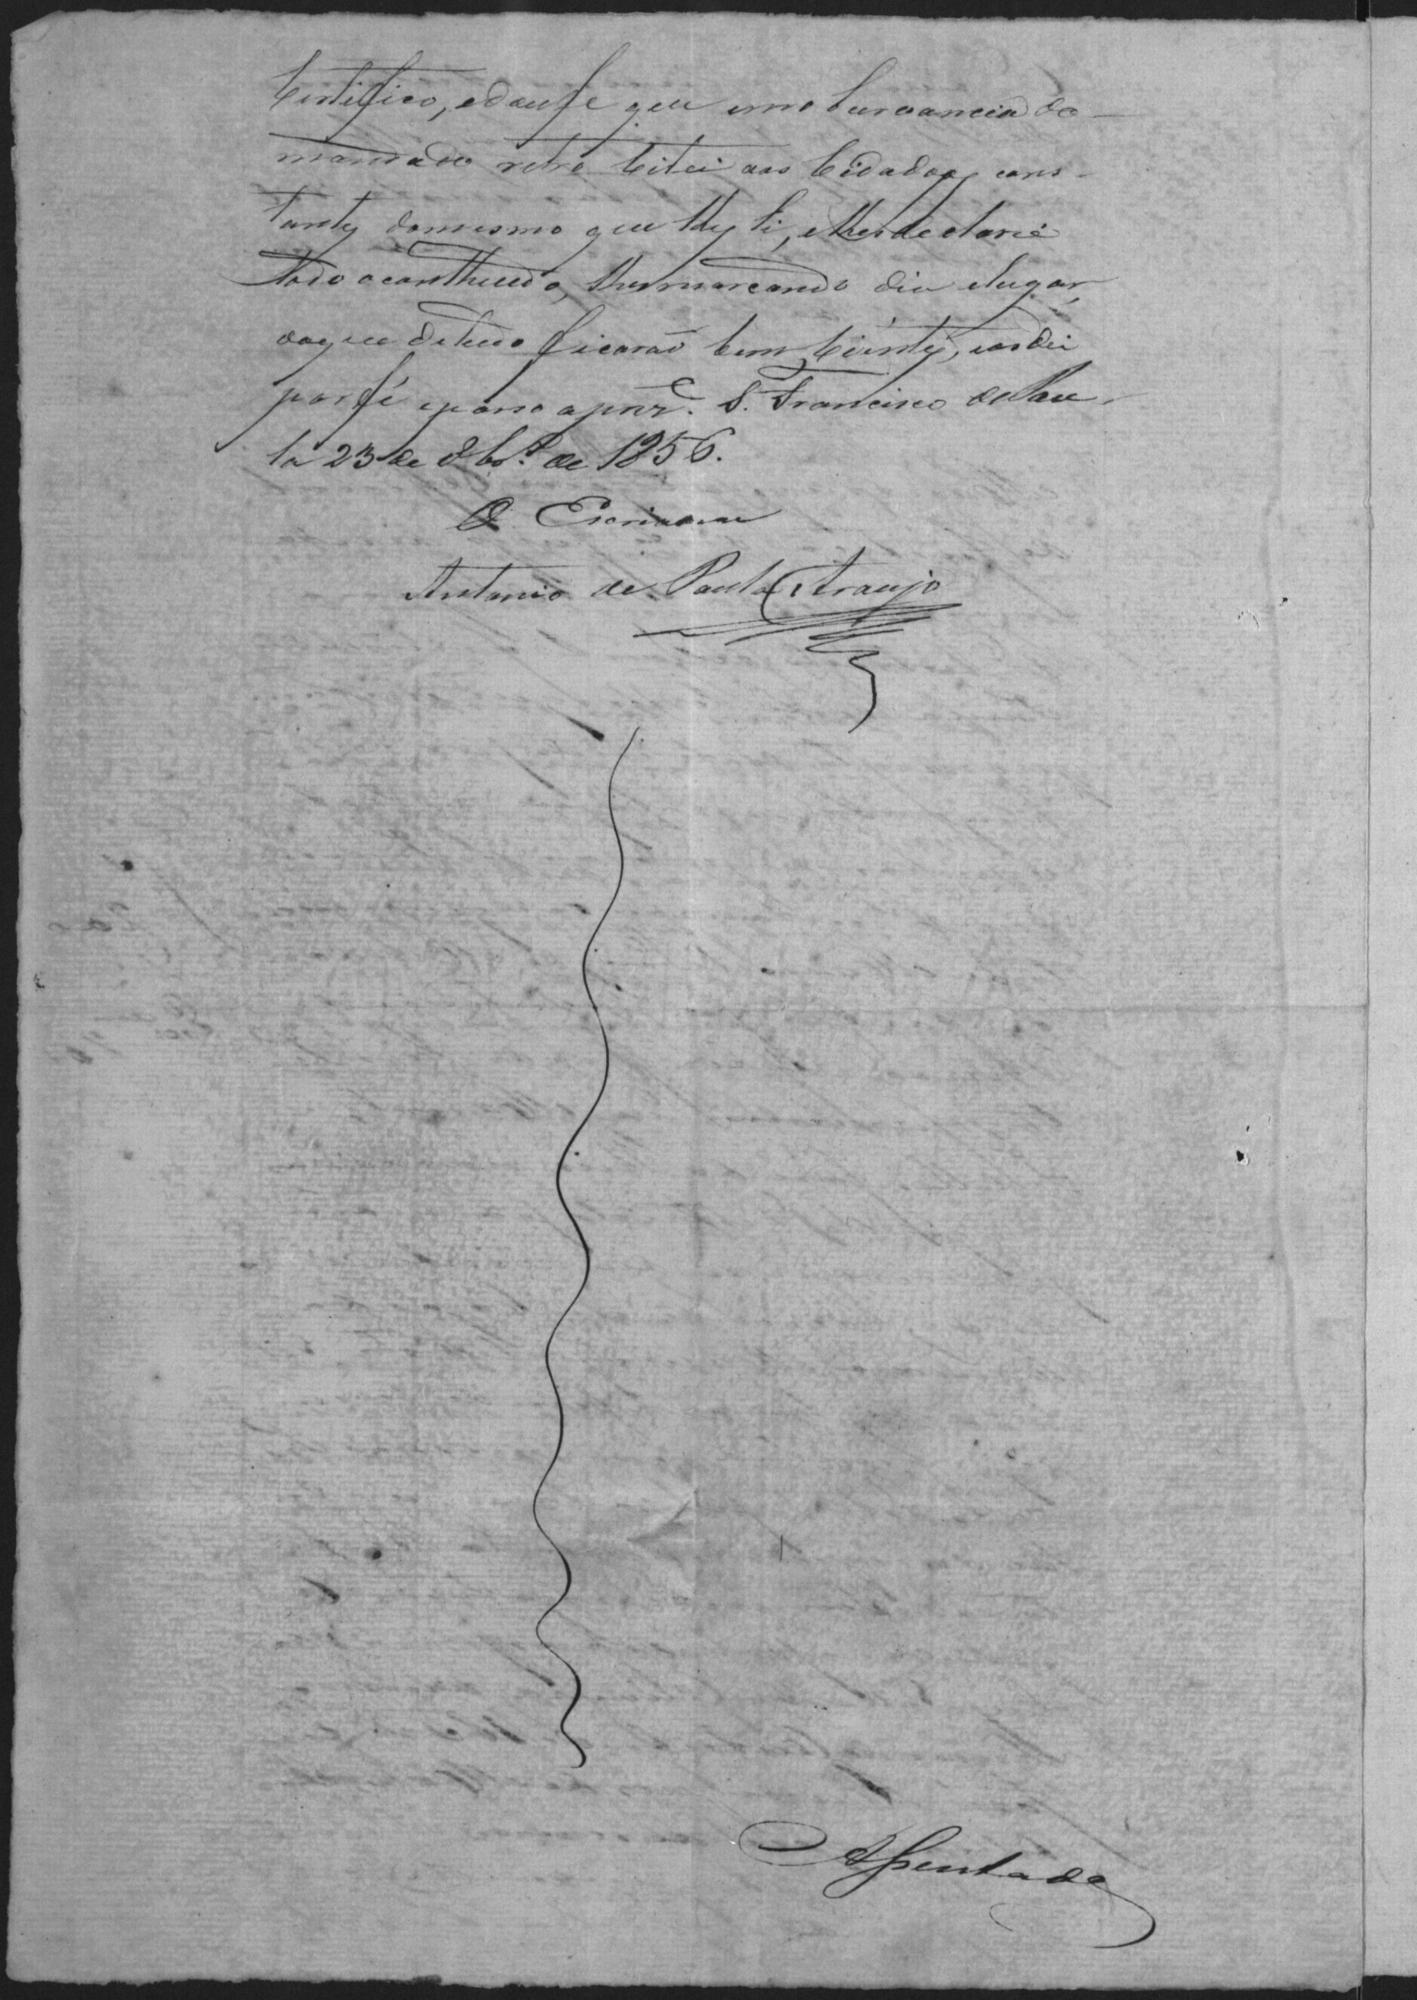 Certifico, e dou fe que em observancia do
mandado retro Citei aos Cidadaos cons-
tantes do mesmo que lhes li, e lhes declarei
todo o conthiudo, lhes marcando dia e lugar,
do que de tudo ficarão bem Cientes, e os dei
por fé e passo a prez.e S. Francisco de Pau-
la 23 de 8br.o de 1856.
O Escrivam
Antonio de Paula Araujo
Assentada